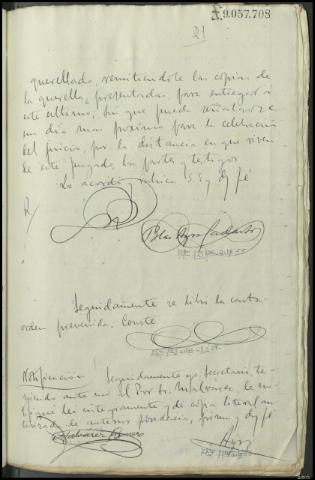 9.057.708
21
querellado, remitiéndole las copias de
la querella presentadas, para entregar a
este ultimo, sin que pueda señalarse
un dia mas proximo para la celebración
del juicio, por la distancia en que residen
de este juzgado las partes y testigos
Lo acordó y rubrica S.S. y doy fé
Seguidamente se libró la carta-
orden prevenida. Conste
Notificación Seguidamente yo, Secretario, te-
niendo ante mi al Pror. Sr. M. Alvarez, le noti-
fiqué lei integramente y di copia literal au-
torizada de anterior providencia, firma y doy fé